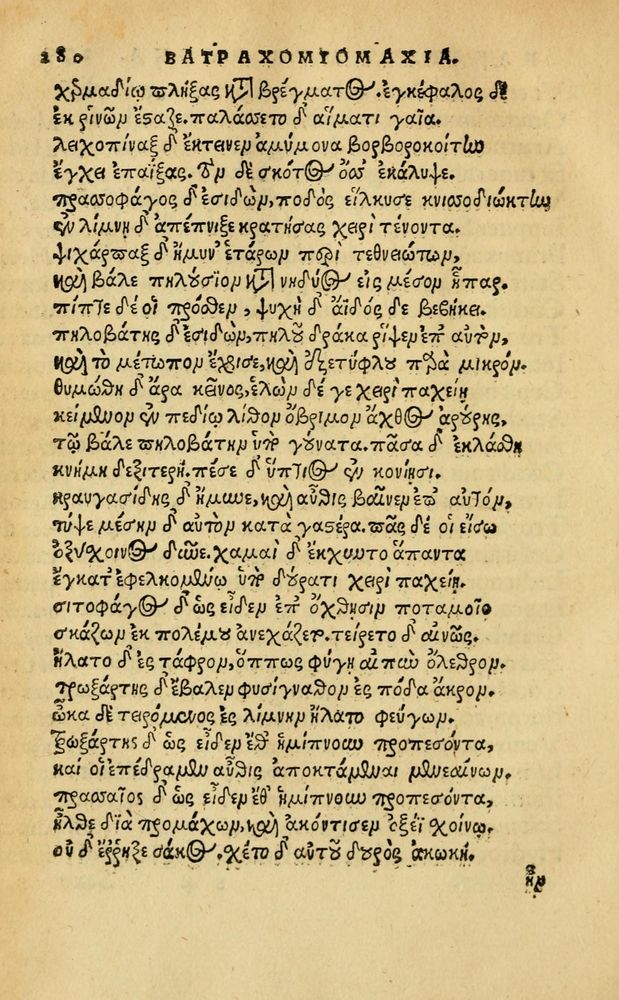 280 ΒΑΤΡΑΧΟΜΥΟΜΑΧΙΑ.
χερμαδίῳ πλήξας κατὰ βρέγματος. ἐγκέφαλος δὲ
ἐκ ῥινῶν ἔσταζε. παλάσσετο δ' αἵματι γαῖα.
λειχοπίναξ δ' ἔκτεινεν ἀμύμονα βορβοροκοίτην
ἔγχει ἐπαΐξας. τὸν δὲ σκότος ὄσσε ἐκάλυψε.
πρασσοφάγος δ' ἐσιδὼν, ποδὸς εἵλκυσε κνισσοδιώκτην
ἐν λίμνῃ δ' ἀπέπνιξε κρατήσας χειρὶ τένοντα.
ψιχάρπαξ δ' ἤμυν' ἑτάρων περὶ τεθνειώτων,
καὶ βάλε πηλούσιον κατὰ νηδύος εἰς μέσον ἧπαρ.
πίπτε δέ οἱ πρόσθεν, ψυχὴ δ' ἄϊδός δε βεβήκει.
πηλοβάτης δ' ἐσιδὼν, πηλοῦ δράκα ῥίψεν ἐπ' αὐτὸν,
καὶ τὸ μέτωπον ἔχρισε, καὶ ἐξετύφλου παρὰ μικρόν.
θυμώθη δ' ἄρα κεῖνος, ἑλὼν δέ γε χειρὶ παχείῃ
κείμενον ἐν πεδίῳ λίθον ὄβριμον ἄχθος ἀρούρης,
τῷ βάλε πηλοβάτην ὑπὸ γούνατα. πᾶσα δ' ἐκλάσθη
κνήμη δεξιτερὴ. πέσε δ' ὕπτιος ἐν κονίῃσι.
κραυγασίδης δ' ἤμυνε, καὶ αὖθις βαῖνεν ἐπ' αὐτόν,
τύψε μέσην δ' αὐτὸν κατὰ γαστέρα. πᾶς δέ οἱ εἴσω
ὀξύσχοινος δῦνε. χαμαὶ δ' ἔκχυντο ἅπαντα
ἔγκατ' ἐφελκομένῳ ὑπὸ δούρατι χειρὶ παχείῃ.
σιτοφάγος δ' ὡς εἶδεν ἐπ' ὄχθῃσιν ποταμοῖο
σκάζων ἐκ πολέμου ἀνεχάζετ. τείρετο δ' αἰνῶς.
ἥλατο δ' ἐς τάφρον, ὅππως φύγῃ αἰπὺν ὄλεθρον.
τρωξάρτης δ' ἔβαλεν φυσίγναθον ἐς πόδα ἄκρον.
ὦκα δὲ τειρόμενος ἐς λίμνην ἥλατο φεύγων.
τρωξάρτης δ' ὡς εἶδεν ἔθ' ἡμίπνουν προπεσόντα,
καί οἱ ἐπέδραμεν αὖθις ἀποκτάμεναι μενεαίνων.
πρασσαῖος δ' ὡς εἶδεν ἔθ' ἡμίπνουν προπεσόντα,
ἦλθε διὰ προμάχων, καὶ ἀκόντισεν ὀξέϊ σχοίνῳ.
οὐ δ' ἔῤῥηξε σάκος. σχέτο δ' αὐτοῦ δουρὸς ἀκωκή.
ἦν